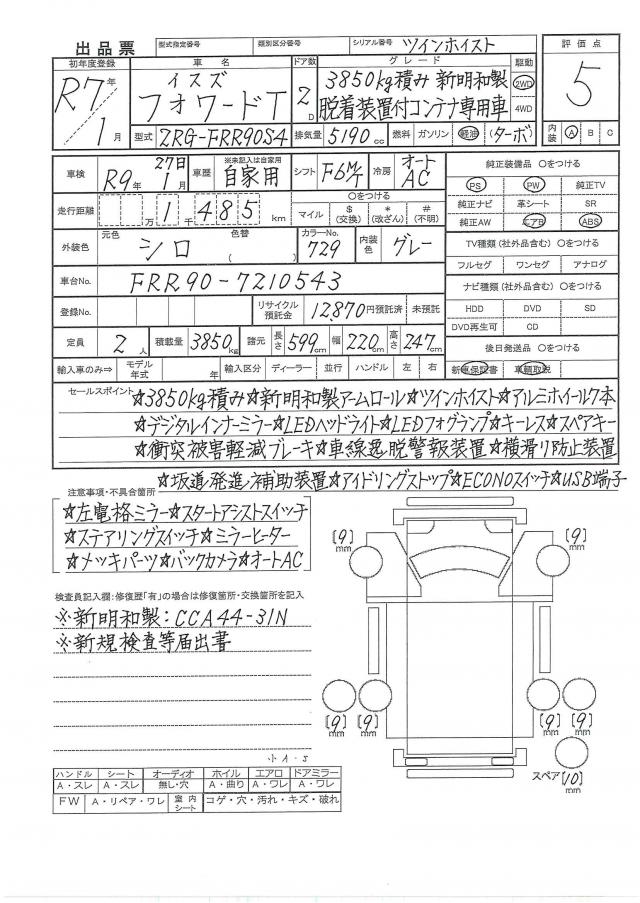 出品票 型式指定番号 類別区分番号 シリアル番号 ツインホイスト 評価点
初年度登録 車名 ドア数 グレード 駆動
R7年 イスズ 3850kg積み 新明和製 2WD 5
フォワードT 2D 脱着装置付コンテナ専用車 4WD
1月 型式 2RG-FRR90S4 排気量 5190cc 燃料 ガソリン 軽油 (ターボ) 内装 A B C
車検 R9年 27日 1月 車歴 ※未記入は自家用 自家用 シフト F6M/T 冷房 オートAC 純正装備品 ○をつける
PS PW 純正TV
走行距離 万 1千485km ○をつける マイル $(交換) *(改ざん) #(不明) 純正ナビ 革シート SR
純正AW エアB ABS
外装色 元色 シロ 色替 ( ) カラーNo. 729 内装色 グレー TV種類(社外品含む) ○をつける
フルセグ ワンセグ アナログ
車台No. FRR90-7210543 ナビ種類(社外品含む) ○をつける
登録No. リサイクル預託金 12,870円預託済 未預託 HDD DVD SD
DVD再生可 CD
定員 2人 積載量 3850kg 諸元 長さ 599cm 幅 220cm 高さ 247cm 後日発送品 ○をつける
輸入車のみ⇒ モデル年式 年 輸入区分 ディーラー 並行 ハンドル 左 右 新車保証書 車輌取説
セールスポイント ☆3850kg積み☆新明和製アームロール☆ツインホイスト☆アルミホイール7本
☆デジタルインナーミラー☆LEDヘッドライト☆LEDフォグランプ☆キーレス☆スペアキー
☆衝突被害軽減ブレーキ☆車線逸脱警報装置☆横滑り防止装置
☆坂道発進補助装置☆アイドリングストップ☆ECONOスイッチ☆USB端子
注意事項・不具合箇所
☆左電格ミラー☆スタートアシストスイッチ
☆ステアリングスイッチ☆ミラーヒーター
☆メッキパーツ☆バックカメラ☆オートAC
[9]mm [9]mm
検査員記入欄:修復歴「有」の場合は修復箇所・交換箇所を記入
※新明和製:CCA44-31N
※新規検査等届出書
[9]mm [9]mm [9]mm [9]mm
小A-S
ハンドル シート オーディオ ホイル エアロ ドアミラー
A・スレ A・スレ 無し・穴 A・曲り A・ワレ A・ワレ
スペア[10]mm
FW A・リペア・ワレ 室内シート コゲ・穴・汚れ・キズ・破れ